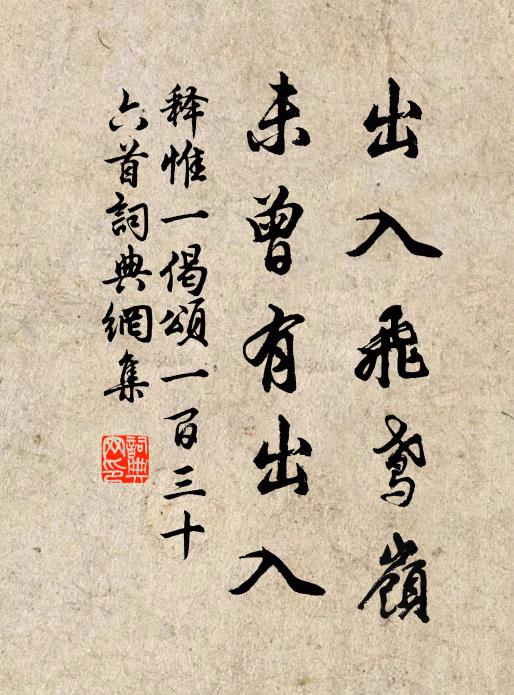 出入飛鳶嶺
未曾有出入
释惟一偈頌一百三十
六首詞典網集
詞典網印